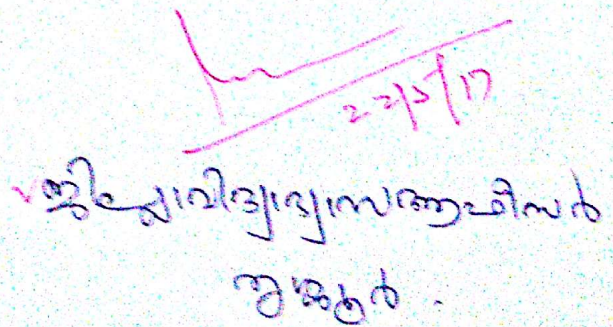 22/5/17
ജില്ലാവിദ്യാഭ്യാസആഫീസർ
തൃശ്ശൂർ.